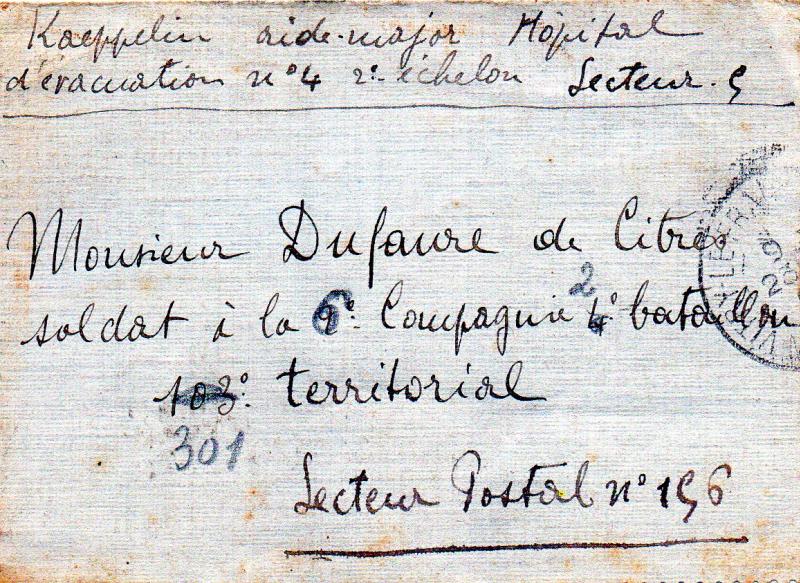 Kaeppelin aide-major Hôpital
d'évacuation n° 4 2e échelon Secteur. 5
Monsieur Dufaure de Citres
soldat à la 6e Compagnie 2 4e bataillon
103e territorial
301
Secteur Postal n° 156